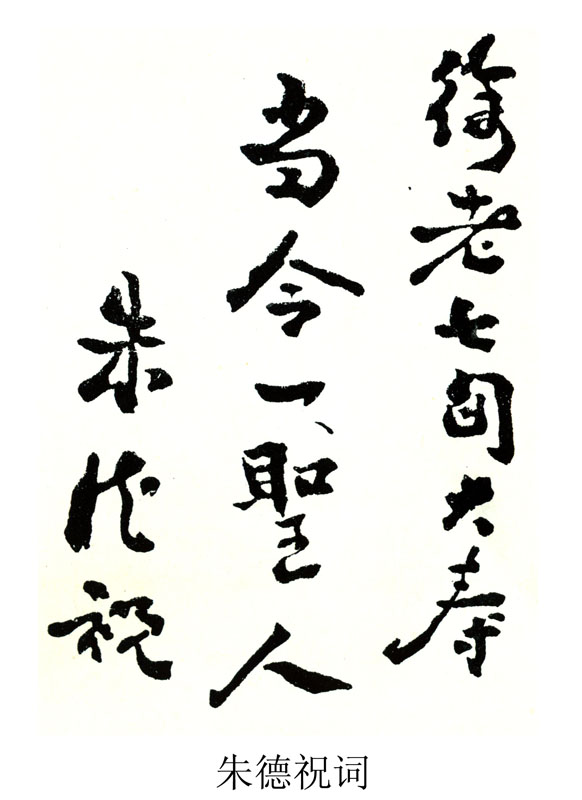 徐老七旬大寿
当今一圣人
朱德祝
朱德祝词